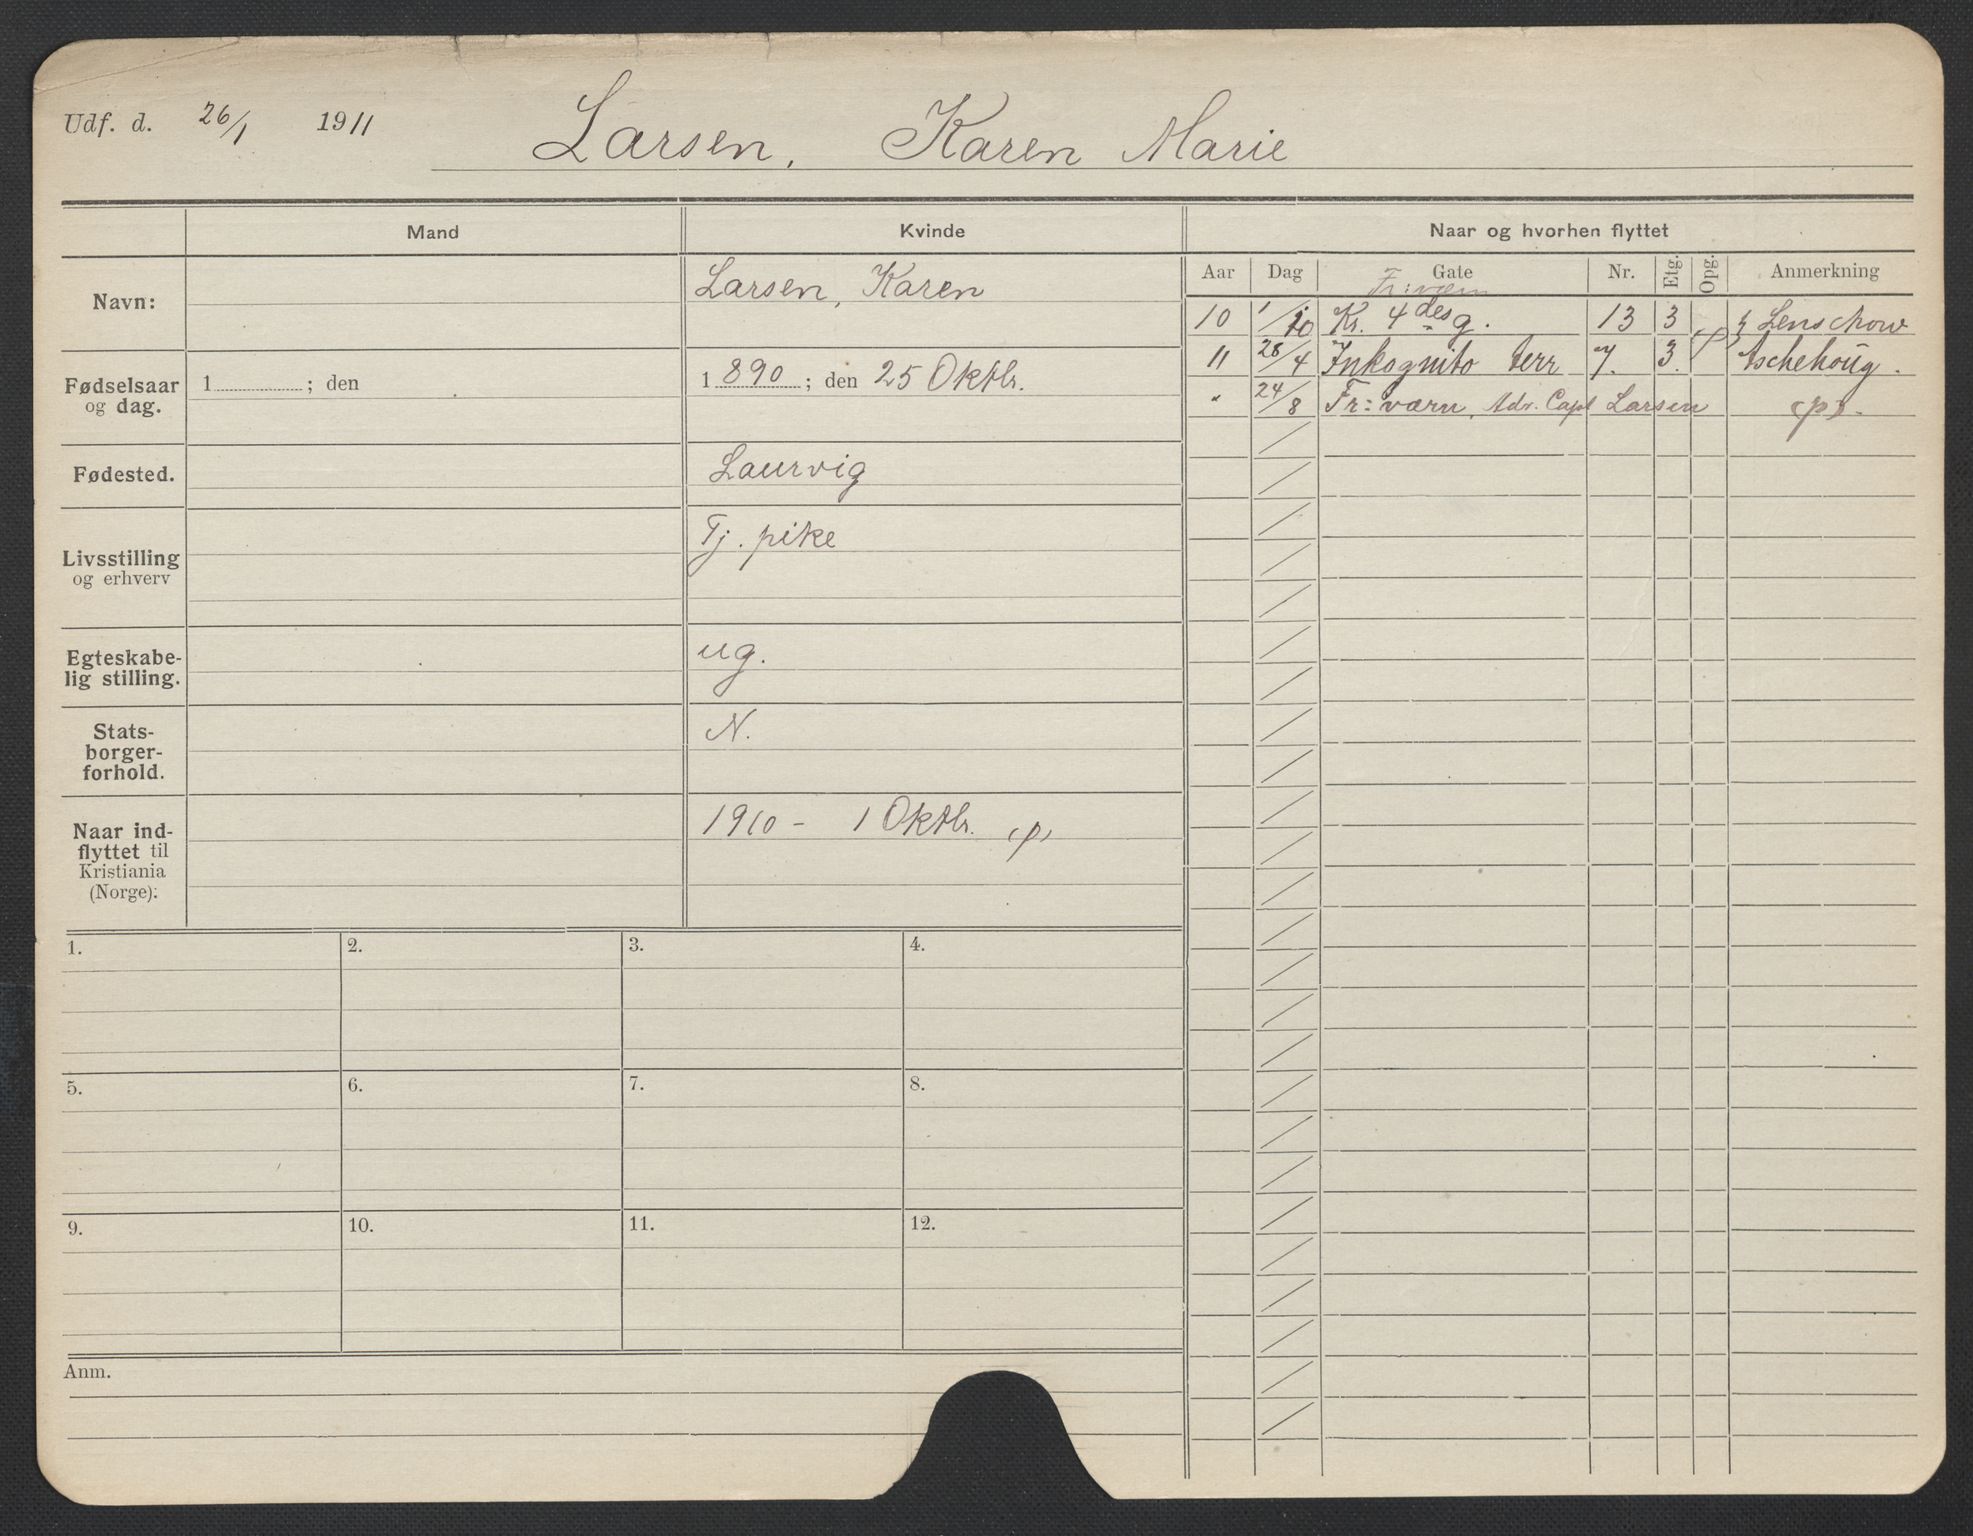 Udf. d. 26/1 1911 Larsen, Karen Marie
Mand Kvinde Naar og hvorhen flyttet
Navn: Larsen, Karen
Aar Dag Gate Nr. Etg. Opg. Anmerkning
Fr: værn
10 1/10 Kr. 4des g. 13 3 Lenschow
11 28/4 Inkognito terr 7. 3. Aschehoug.
" 24/8 Fr: værn, Adr. Capt Larsen (p).
Fødselsaar
og dag.
1 ; den
1890; den 25 Oktbr.
Fødested. Laurvig
Livsstilling
og erhverv
Tj. pike
Egteskabe-
lig stilling.
ug.
Stats-
borger-
forhold.
N.
Naar ind-
flyttet til
Kristiania
(Norge):
1910 - 1 Oktbr. (p)
1. 2. 3. 4.
5. 6. 7. 8.
9. 10. 11. 12.
Anm.